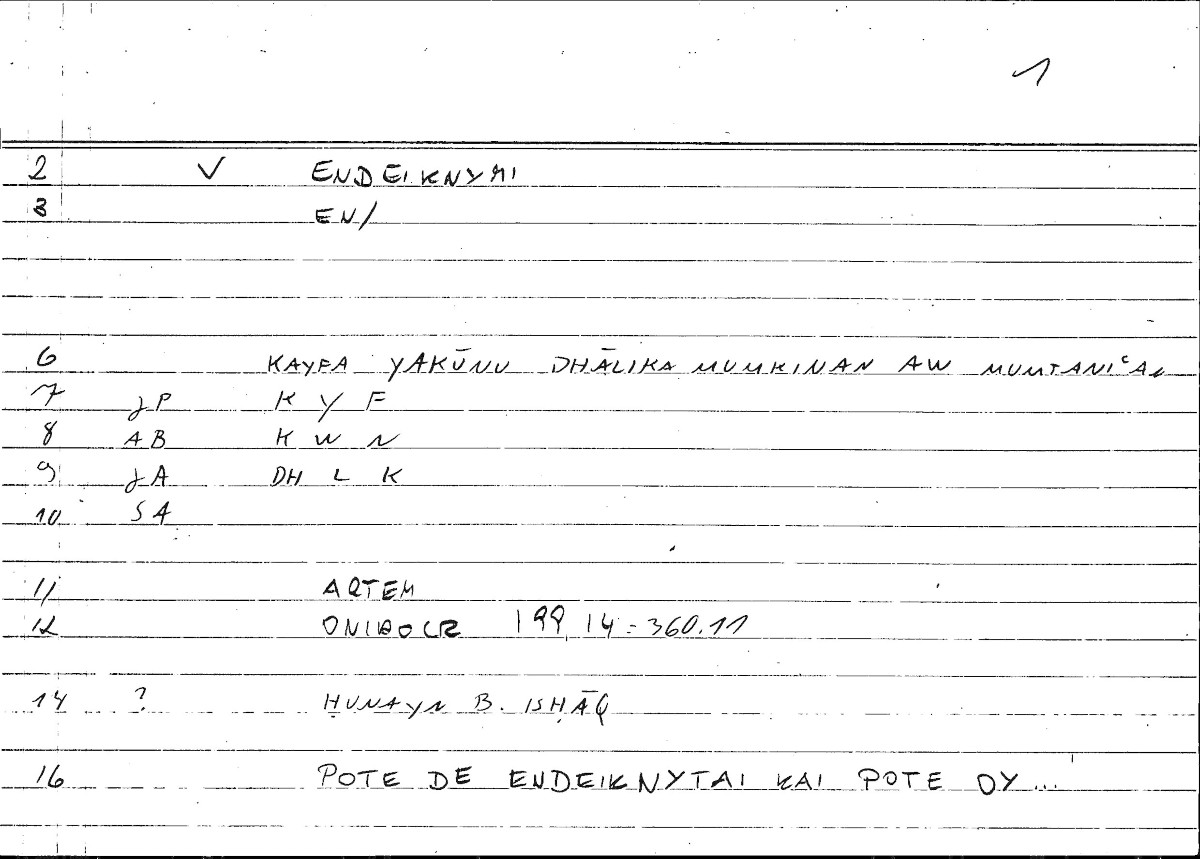 1
2 V ENDEIKNYMI
3 EN/
6 KAYFA YAKŪNU DHĀLIKA MUMKINAN AW MUMTANIʿAN
7 JP K Y F
8 AB K W N
9 JA DH L K
10 SA
11 ARTEM
12 ONIROCR 199,14 = 360.11
14 ? ḤUNAYN B. ISḤĀQ
16 POTE DE ENDEIKNYTAI KAI POTE OY ...